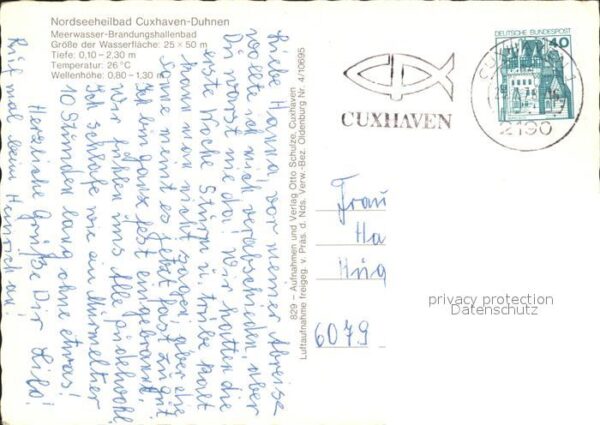 Nordseeheilbad Cuxhaven-Duhnen
Meerwasser-Brandungshallenbad
Größe der Wasserfläche: 25 x 50 m
Tiefe: 0,10 - 2,30 m
Temperatur: 26°C
Wellenhöhe: 0,80 - 1,30 m
Liebe Hanna, vor meiner Abreise
wollte ich mich verabschieden, aber
Du warst nie da! Wir hatten die
erste Woche Sturm u. trübe kalt
kann man nicht sagen, aber die
Sonne meint es jetzt fast zu gut
Ich bin ganz fest eingebrannt.
Wir fühlen uns alle pudelwohl
Ich schlafe wie ein Murmeltier
10 Stunden lang ohne etwas!
Herzliche Grüße Dir Lilo!
Ruf mal beim Heinrich an!
829 – Aufnahmen und Verlag Otto Schulze, Cuxhaven
Luftaufnahme freigeg. v. Präs. d. Nds. Verw.-Bez. Oldenburg Nr. 4/10695
CUXHAVEN
2190
DEUTSCHE BUNDESPOST
40
Frau
Ha
Hüg
6079
privacy protection
Datenschutz